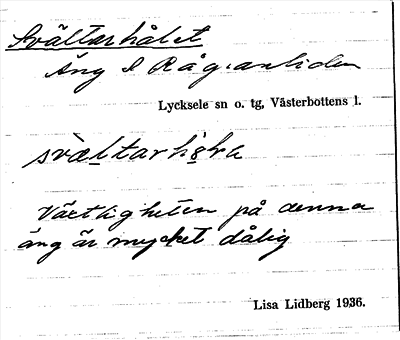 Svältarhålet
Äng S Rågoanliden
Lycksele sn o. tg, Västerbottens l.
svæltarhɵla
Växtligheten på denna
äng är mycket dålig
Lisa Lidberg 1936.